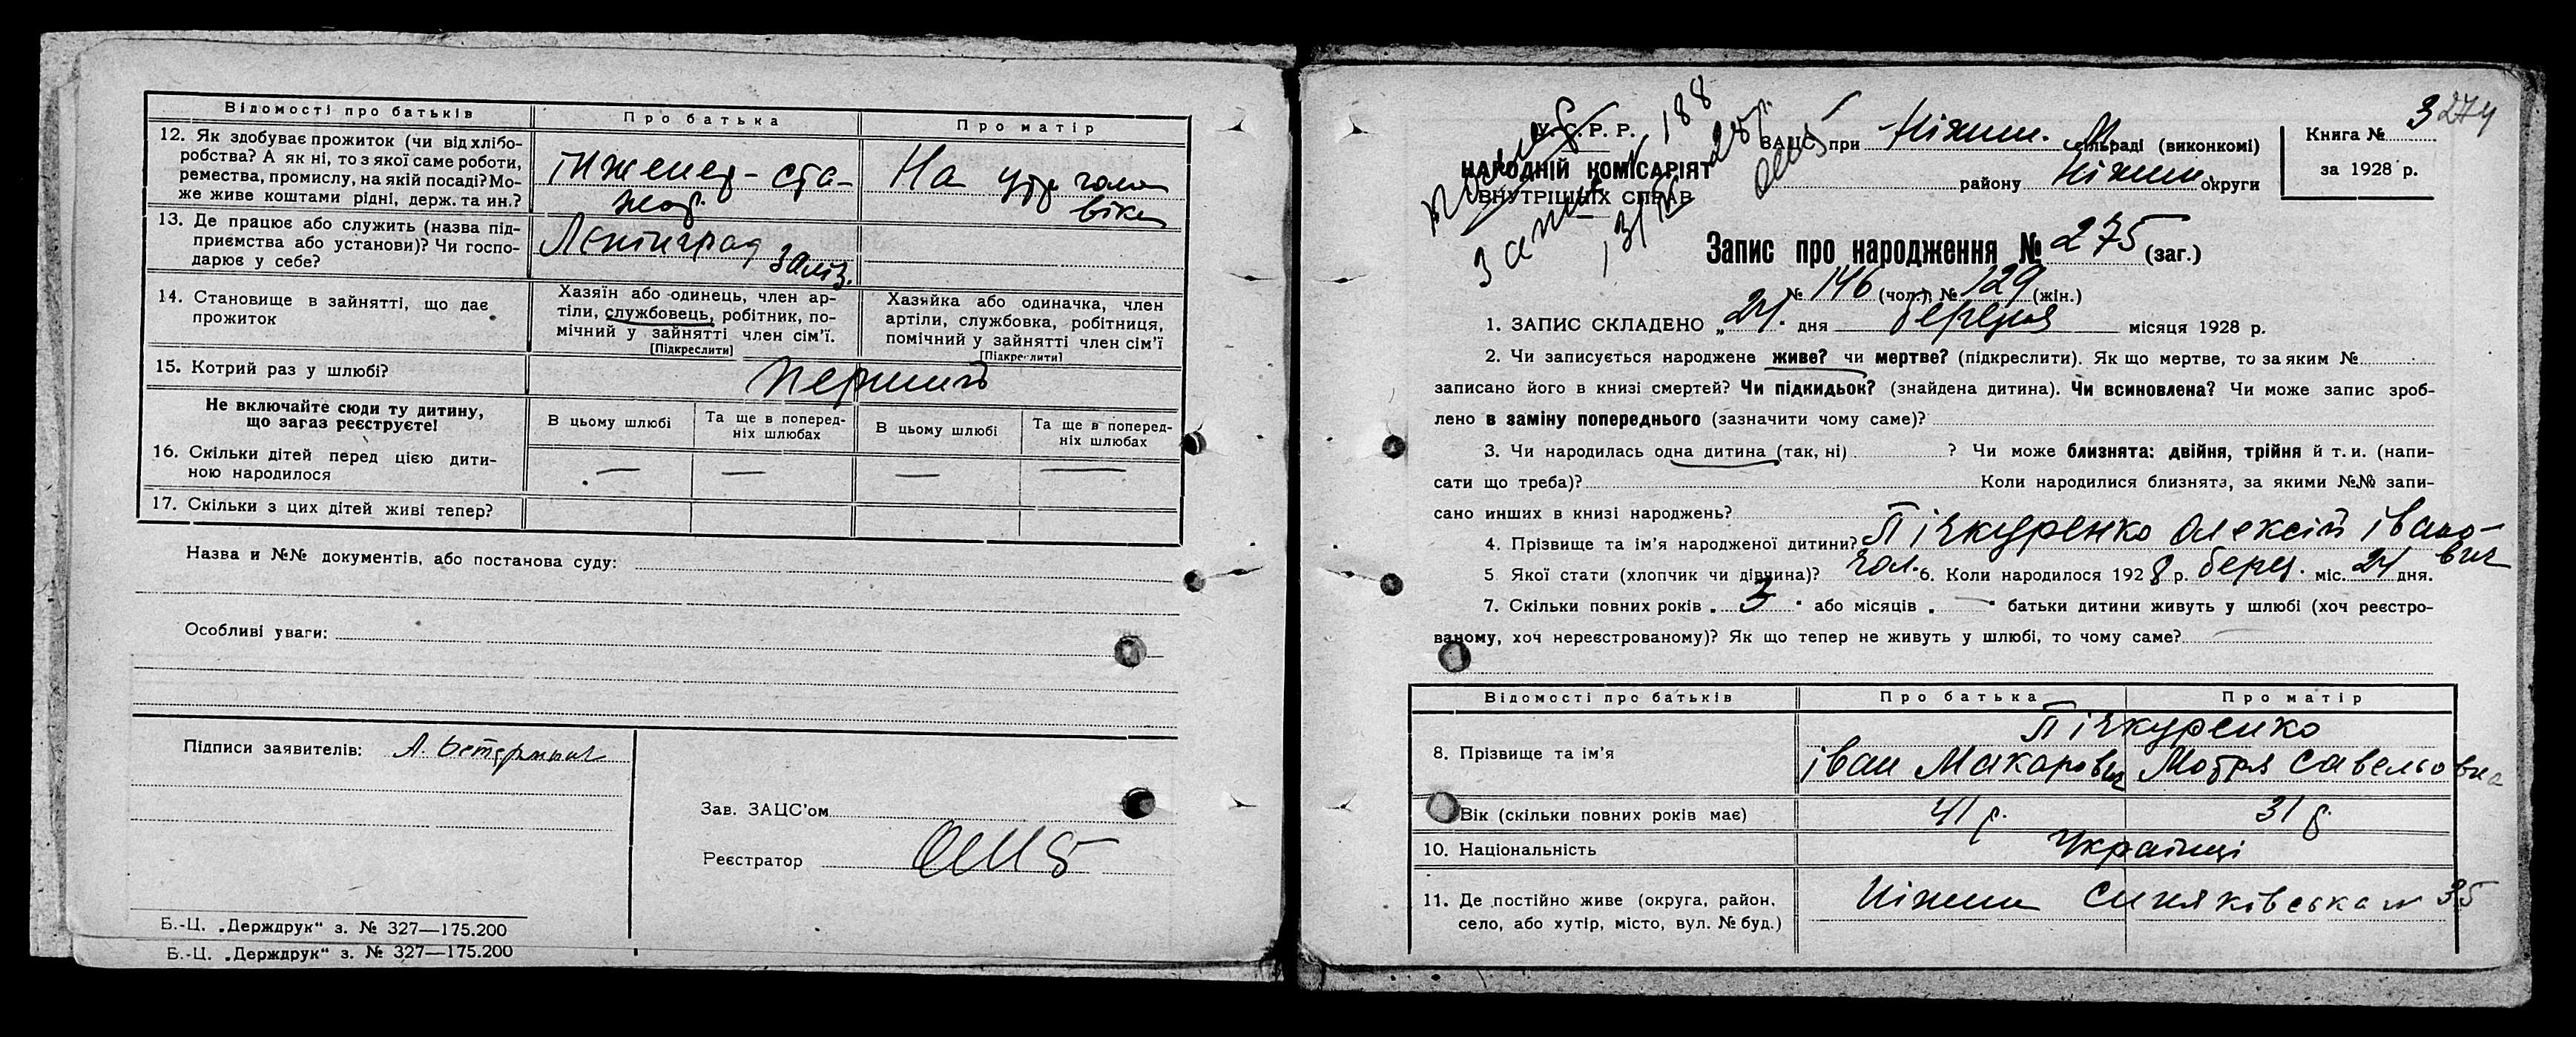 Відомості про батьків
Про батька
Про матір
12. Як здобуває прожиток (чи від хлібо-
робства? А як ні, то з якої саме роботи,
ремества, промислу, на якій посаді? Мо-
же живе коштами рідні, держ. та ин.?
Інженер-ста-
жор.
На утр. чоло
віка
13. Де працює або служить (назва під-
приємства або установи)? Чи госпо-
дарює у себе?
Ленінград
Заліз.
14. Становище в зайнятті, що дає
прожиток
Хазяїн або одинець, член ар-
тіли, службовець, робітник, по-
мічний у зайнятті член сім'ї.
[Підкреслити]
Хазяйка або одиначка, член
артіли, службовка, робітниця,
помічний у зайнятті член сім'ї
[Підкреслити]
15. Котрий раз у шлюбі?
Перший
Не включайте сюди ту дитину,
що загаз реєструєте!
В цьому шлюбі
Та ще в поперед-
ніх шлюбах
В цьому шлюбі
Та ще в поперед-
ніх шлюбах
16. Скільки дітей перед цією дити-
ною народилося
— — — —
17. Скільки з цих дітей живі тепер?
Назва и №№ документів, або постанова суду:
Особливі уваги:
Підписи заявителів: А.
Зав. ЗАЦС'ом
Реєстратор
Б.-Ц. „Держдрук" з. № 327—175.200
Б.-Ц. „Держдрук" з. № 327—175.200
У. С. Р. Р.
НАРОДНІЙ КОМІСАРІЯТ
ВНУТРІШНІХ СПРАВ
188
ЗАЦС при Ніжин. М. сільраді (виконкомі)
району Ніжин. округи
Книга № 3
за 1928 р.
274
Запис про народження № 275 (заг.)
№ 146 (чол.), № 129 (жін.)
1. ЗАПИС СКЛАДЕНО „24. дня березня місяця 1928 р.
2. Чи записується народжене живе? чи мертве? (підкреслити). Як що мертве, то за яким №
записано його в книзі смертей? Чи підкидьок? (знайдена дитина). Чи всиновлена? Чи може запис зроб-
лено в заміну попереднього (зазначити чому саме)?
3. Чи народилась одна дитина (так, ні) ? Чи може близнята: двійня, трійня й т. и. (напи-
сати що треба)? Коли народилися близнята, за якими №№ запи-
сано инших в книзі народжень?
4. Прізвище та ім'я народженої дитини? Пічкуренко Олексій Івано-
вич
5 Якої стати (хлопчик чи дівчина)? Чол. 6. Коли народилося 1928 р. берез. міс. 21 дня.
7. Скільки повних років „ 3 " або місяців „ — " батьки дитини живуть у шлюбі (хоч реєстро-
ваному, хоч нереєстрованому)? Як що тепер не живуть у шлюбі, то чому саме?
Відомості про батьків
Про батька
Про матір
8. Прізвище та ім'я
Пічкуренко
Іван Макарович
Мотря Савельовна
Вік (скільки повних років має)
41 р.
31 р.
10. Національність
Українці
11. Де постійно живе (округа, район,
село, або хутір, місто, вул. № буд.)
Ніжин Синяківська № 35